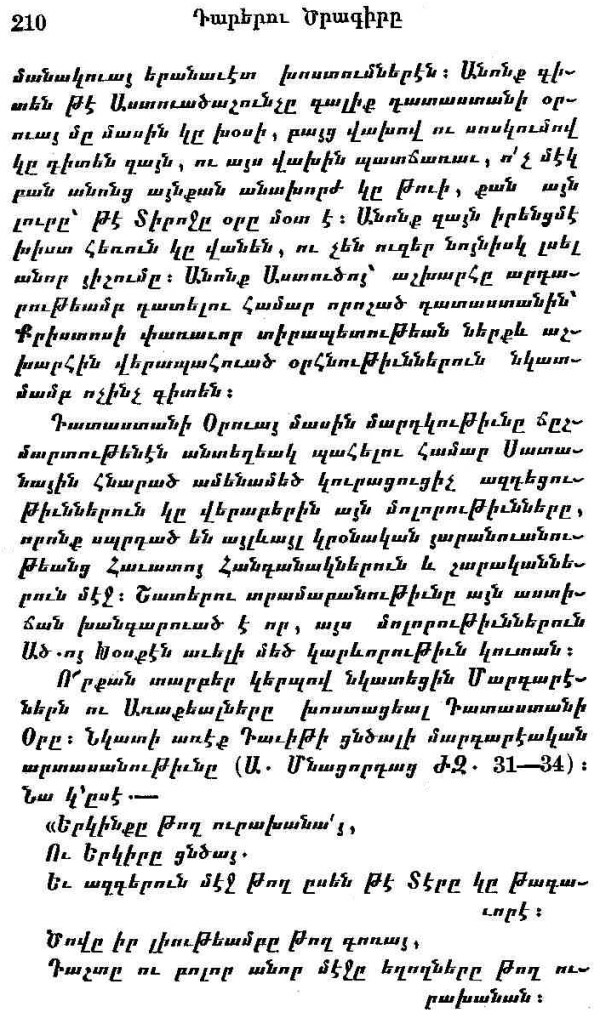 210 Դարերու Ծրագիրը
մանակուայ երանաւէտ խոստումներէն։ Անոնք գի-
տեն թէ Աստուածաշունչը գալիք դատաստանի օր-
ուայ մը մասին կը խօսի, բայց վախով ու սոսկումով
կը գիտեն զայն, ու այս վախին պատճառաւ, ո՛չ մէկ
բան անոնց այնքան անախորժ կը թուի, քան այն
լուրը՝ թէ Տիրոջը օրը մօտ է։ Անոնք զայն իրենցմէ
խիստ հեռուն կը վանեն, ու չեն ուզեր նոյնիսկ լսել
անոր յիշումը։ Անոնք Աստուծոյ՝ աշխարհը արդա-
րութեամբ դատելու համար որոշած դատաստանին՝
Քրիստոսի փառաւոր տիրապետութեան ներքև աշ-
խարհին վերապահուած օրհնութիւններուն նկատ-
մամբ ոչինչ գիտեն։
Դատաստանի Օրուայ մասին մարդկութիւնը ճըշ-
մարտութենէն անտեղեակ պահելու համար Սատա-
նային հնարած ամենամեծ կուրացուցիչ ազդեցու-
թիւններուն կը վերաբերին այն մոլորութիւնները,
որոնք սպրդած են այլևայլ կրօնական յարանուանու-
թեանց Հաւատոյ Հանդանակներուն և շարականնե-
րուն մէջ։ Շատերու տրամաբանութիւնը այն աստի-
ճան խանգարուած է որ, այս մոլորութիւններուն
Ած․ոյ Խօսքէն աւելի մեծ կարևորութիւն կուտան։
Ո՜րքան տարբեր կերպով նկատեցին Մարգարէ-
ներն ու Առաքեալները խոստացեալ Դատաստանի
Օրը։ Նկատի առէք Դաւիթի ցնծալի մարգարէական
արտասանութիւնը (Ա․ Մնացորդաց ԺԶ․ 31—34)։
Նա կ՚ըսէ․—
«Երկինքը թող ուրախանա՛յ,
Ու Երկիրը ցնծայ․
Եւ ազգերուն մէջ թող ըսեն թէ Տէրը կը թագա-
ւորէ։
Ծովը իր լիութեամբը թող գոռայ,
Դաշտը ու բոլոր անոր մէջը եղողները թող ու-
րախանան։